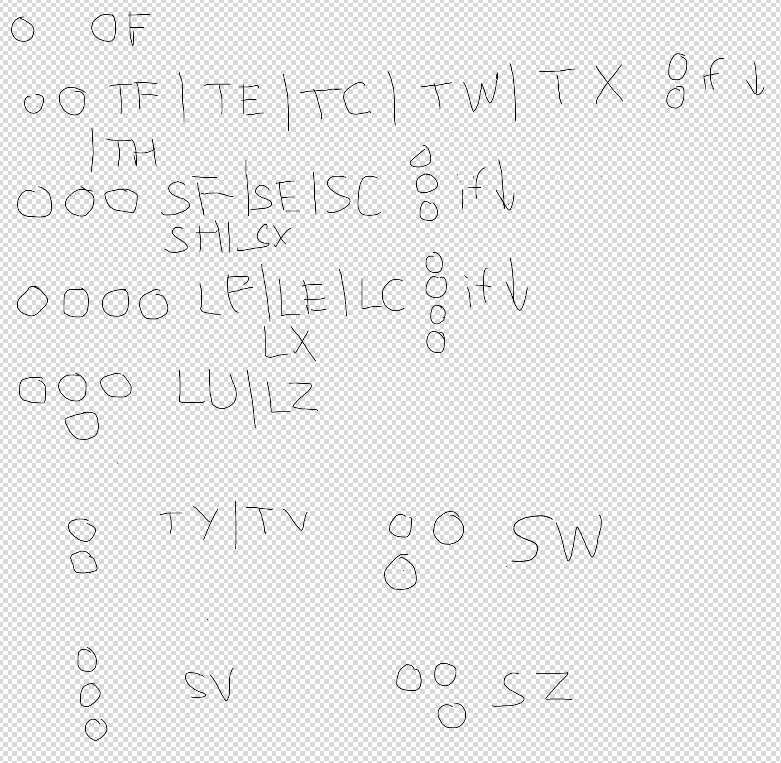 OF
TF | TE | TC | TW | TX if ↓
| TH
SF | SE | SC if ↓
SH | SX
LF | LE | LC if ↓
LX
LU | LZ
TY | TV SW
SV SZ